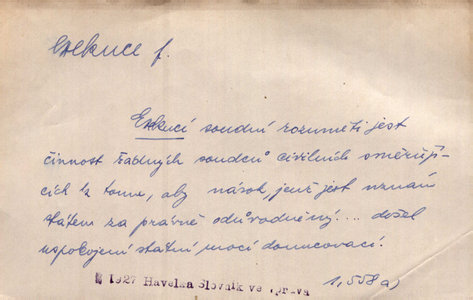 exekuce f.
Exekucí soudní rozuměti jest
činnost řádných soudců civilních směřují-
cích k tomu, aby nárok, jenž jest uznán
státem za právně odůvodněný... došel
uspokojení státní mocí donucovací.
1927 Havelka Slovník veř. práva
1, 558 a)